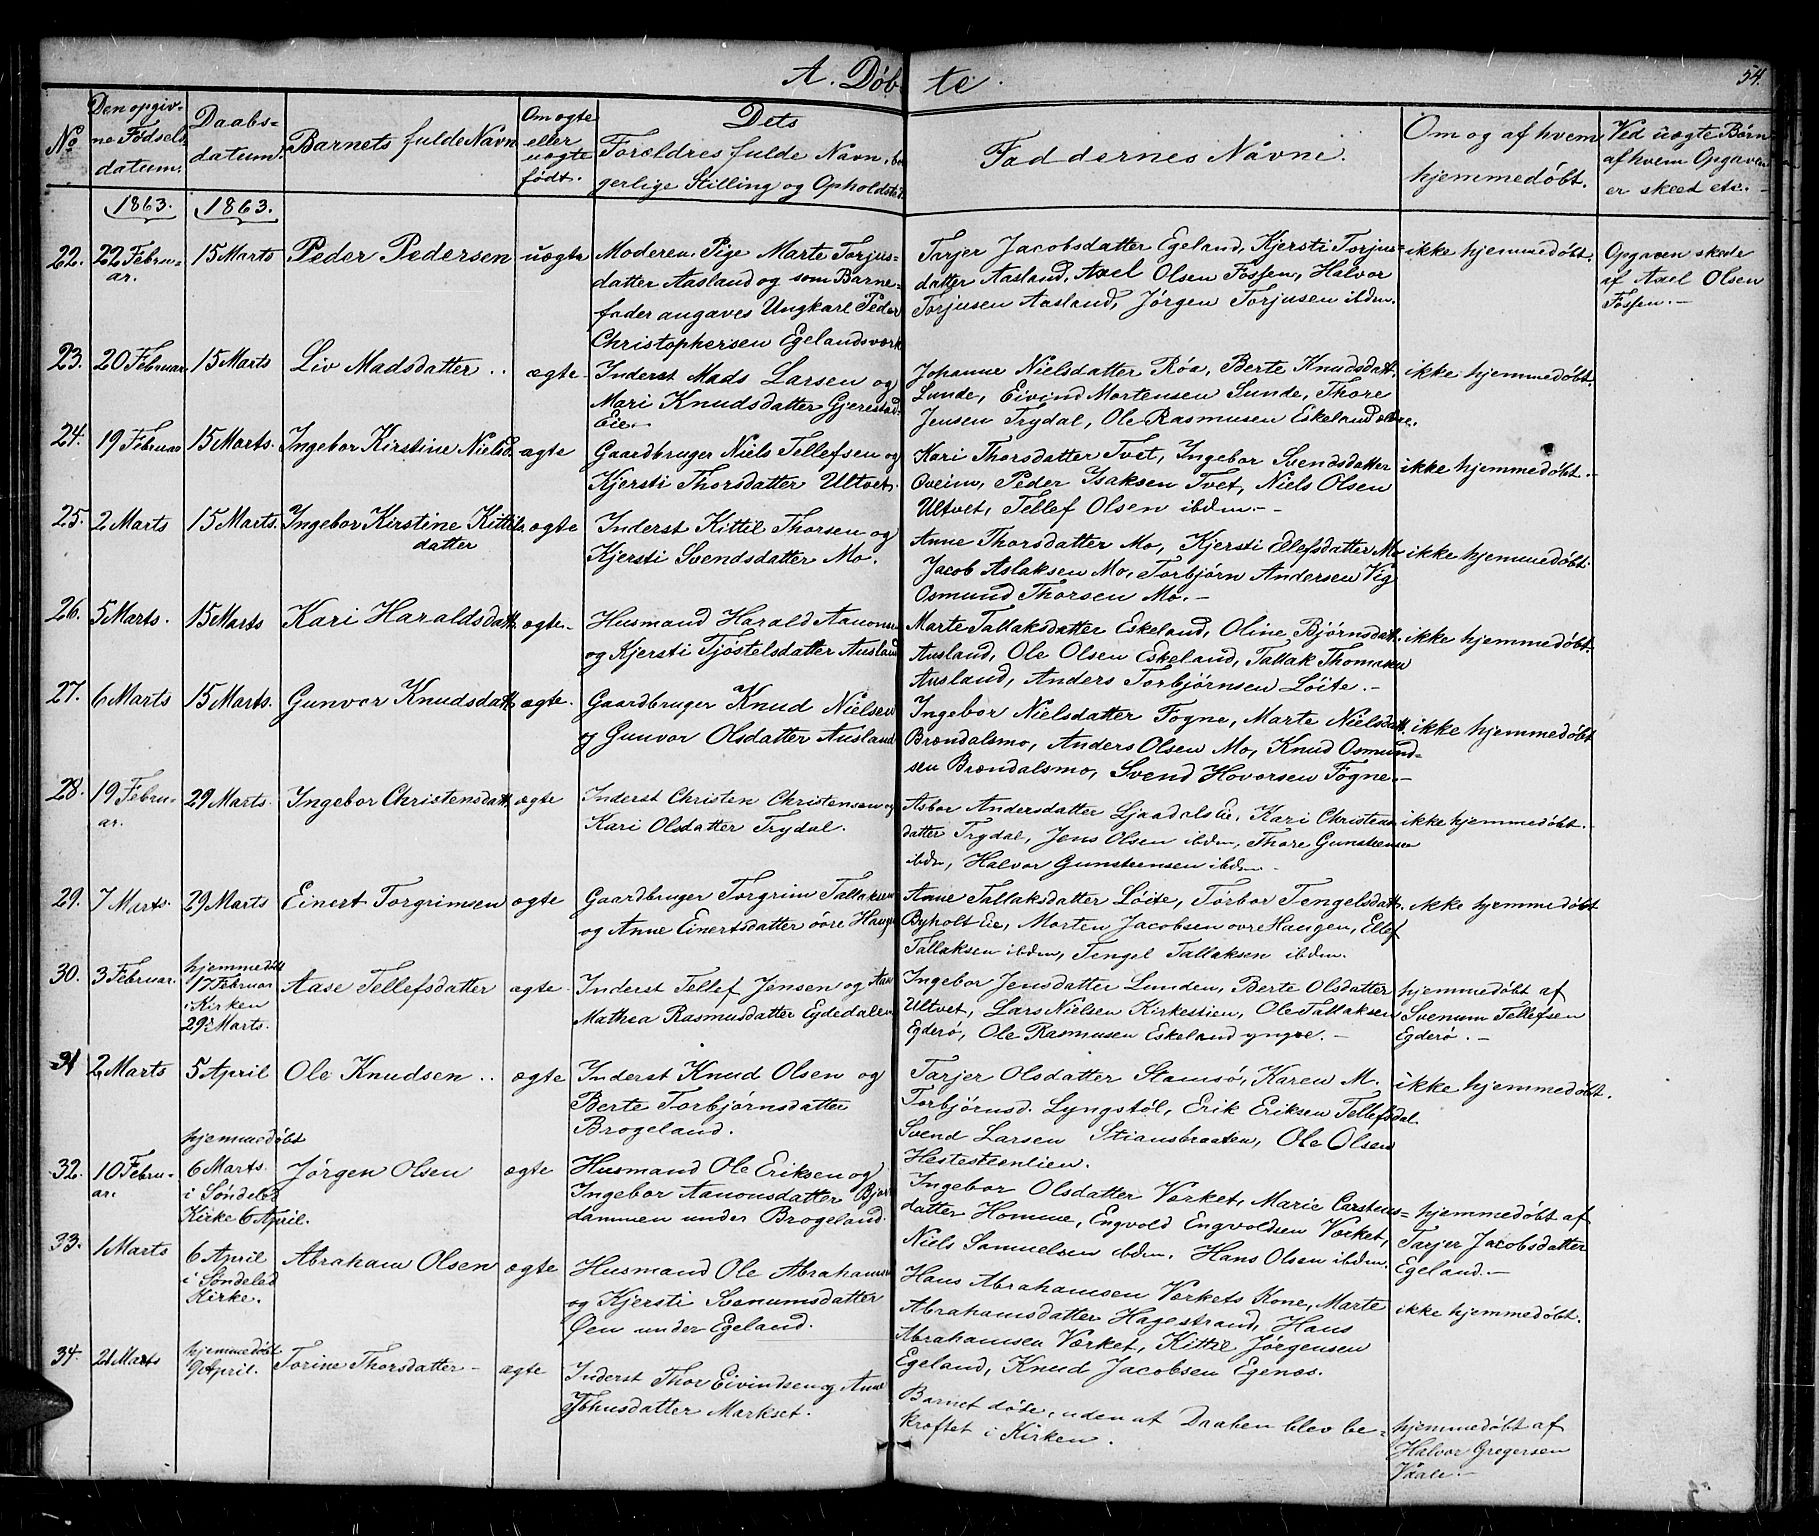 A. Döbte.
54.
No
Den opgivne Fødselsdatum.
Daabsdatum.
Barnets fulde Navn
Om ægte eller uægte født.
Dets Forældres fulde Navn, borgerlige Stilling og Opholdsted
Faddernes Navne.
Om og af hvem hjemmedøbt.
Ved uægte Børn af hvem Opgaven er skeet etc. -
1863. 1863.
22. 22 Februar. 15 Marts Peder Pedersen uægte
Moderen Pige Marte Torjus-
datter Aasland og som Barne-
fader angaves Ungkarl Peder
Christophersen Egelandsværk
Tarjer Jacobsdatter Egeland, Kjersti Torjus-
datter Aasland, Axel Olsen Fossen, Halvor
Torjusen Aasland, Jørgen Torjusen ibdm.
ikke hjemmedøbt.
Opgaven skede
af Axel Olsen
Fossen. -
23. 20 Februar 15 Marts Liv Madsdatter .. ægte
Inderst Mads Larsen og
Mari Knudsdatter Gjerestad
Eie.
Johanne Nielsdatter Röa, Berte Knudsdatt.
Lunde, Eivind Mortensen Sunde, Thore
Jensen Trydal, Ole Rasmusen Eskeland ældre.
ikke hjemmedøbt.
24. 19 Februar 15 Marts. Ingebor Kirstine Nielsd. ægte
Gaardbruger Niels Tellefsen og
Kjersti Thorsdatter Ultvet.
Kari Thorsdatter Tvet, Ingebor Svendsdatter
Oveim, Peder Isaksen Tvet, Niels Olsen
Ultvet, Tellef Olsen ibdm. -
ikke hjemmedøbt. -
25. 2 Marts 15 Marts. Ingebor Kirstine Kittils- ægte
datter
Inderst Kittil Thorsen og
Kjersti Svendsdatter Mo.
Anne Thorsdatter Mo, Kjersti Ellefsdatter Mo
Jacob Aslaksen Mo, Torbjørn Andersen Vig
Osmund Thorsen Mo. -
ikke hjemmedøbt.
26. 5 Marts. 15 Marts Kari Haraldsdatt. ægte.
Husmand Harald Aanonsen
og Kjersti Tjøstelsdatter Ausland
Marte Tallaksdatter Eskeland, Oline Bjørnsdatt.
Ausland, Ole Olsen Eskeland, Tallak Thomasen
Ausland, Anders Torbjørnsen Löite. -
ikke hjemmedøbt.
27. 6 Marts 15 Marts. Gunvor Knudsdatt. ægte.
Gaardbruger Knud Nielsen
og Gunvor Olsdatter Ausland
Ingebor Nielsdatter Fogne, Marte Nielsdatt.
Brændalsmo, Anders Olsen Mo, Knud Osmund-
sen Brændalsmo, Svend Hovorsen Fogne. -
ikke hjemmedøbt
28. 19 Februar. 29 Marts. Ingebor Christensdatt. ægte
Inderst Christen Christensen og
Kari Olsdatter Trydal.
Asbor Andersdatter Ljaadals Eie, Kari Christens-
datter Trydal, Jens Olsen ibdm, Thore Gunsteensen
ibdm, Halvor Gunsteensen ibdm. -
ikke hjemmedøbt. -
29. 7 Marts. 29 Marts Einert Torgrimsen ægte
Gaardbruger Torgrim Tallaksen
og Anne Einertsdatter övre Haugen
Anne Tallaksdatter Löite, Torbor Tengelsdatt.
Byholt Eie, Morten Jacobsen övre Haugen, Ellef
Tallaksen ibdm, Tengel Tallaksen ibdm.
ikke hjemmedøbt
30. 3 Februar. hjemmedøbt
17 Februar
i Kirken
29 Marts.
Aase Tellefsdatter ægte
Inderst Tellef Jensen og Aase
Mathea Rasmusdatter Egdedalen
Ingebor Jensdatter Lunden, Berte Olsdatter
Ultvet, Lars Nielsen Kirkestien, Ole Tallaksen
Egderö, Ole Rasmusen Eskeland yngre. -
hjemmedøbt af
Svenum Tellefsen
Egderö. -
31 2 Marts 5 April Ole Knudsen .. ægte
Inderst Knud Olsen og
Berte Torbjørnsdatter
Brogeland.
Tarjer Olsdatter Stamsö, Karen M.
Torbjörnsd. Lyngstöl, Erik Eriksen Tellefsdal
Svend Larsen Stiansbraaten, Ole Olsen
Hestesteenlien.
ikke hjemmedøbt.
32. 10 Februar. hjemmedøbt
6 Marts.
i Søndeled
Kirke 6 April.
Jørgen Olsen ægte
Husmand Ole Eriksen og
Ingebor Aanonsdatter
dammen under Brogeland.
Ingebor Olsdatter Værket, Marie Carstens-
datter Homme, Engvold Engvoldsen Værket,
Niels Samuelsen ibdm. Hans Olsen ibdm.
hjemmedøbt af
Tarjer Jacobsdatter
Egeland. -
33. 1 Marts 6 April
i Søndeled
Kirke.
Abraham Olsen ægte
Husmand Ole Abrahamsen
og Kjersti Svenumsdatter
Øen under Egeland.
Hans Abrahamsen Værkets Kone, Marte
Abrahamsdatter Hagestrand, Hans
Abrahamsen Værket, Kittil Jørgensen
Egeland, Knud Jacobsen Egenæs.
ikke hjemmedøbt.
34. 21 Marts hjemmedøbt
9 April.
Torine Thorsdatter - ægte
Inderst Thor Eivindsen og Anne
Johusdatter Markset.
Barnet döde, uden at Daaben blev be-
kræftet i Kirken.
hjemmedøbt af
Halvor Gregersen
Vaale. -